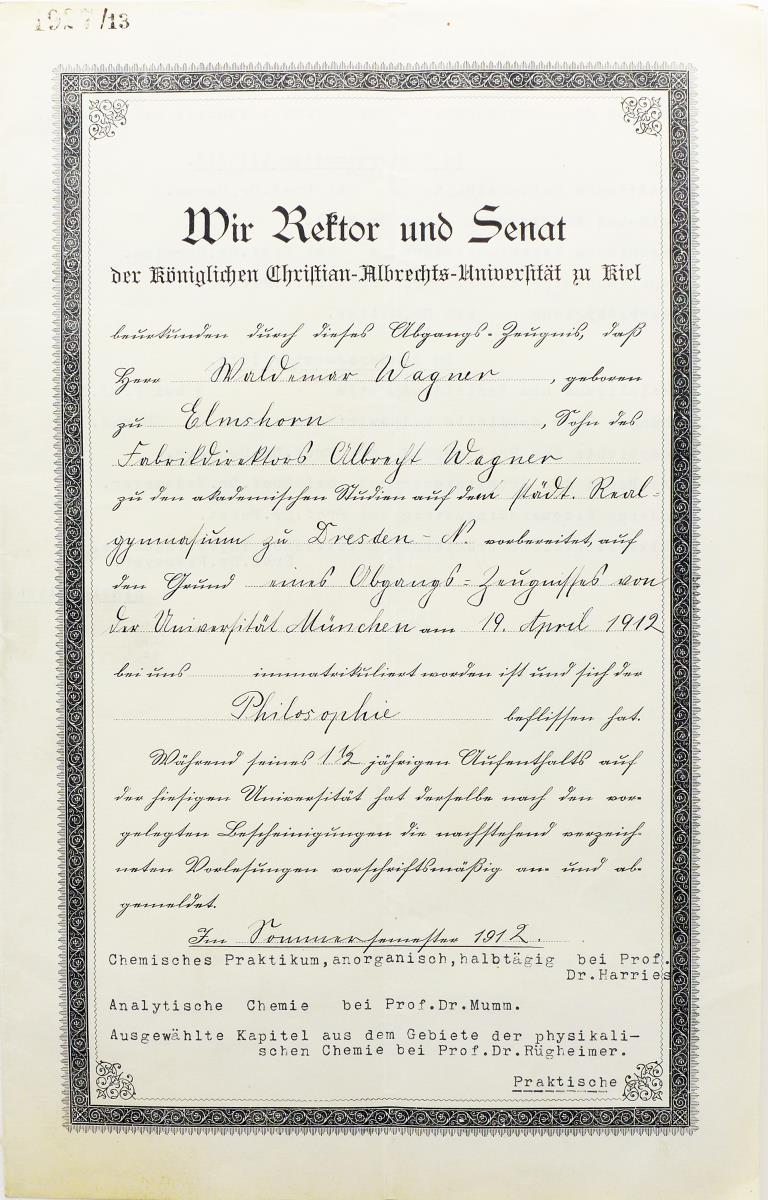 1927/13
Wir Rektor und Senat
der Königlichen Christian-Albrechts-Universität zu Kiel
beurkunden durch dieses Abgangs-Zeugnis, daß
Herr Waldemar Wagner, geboren
zu Elmshorn, Sohn des
Fabrikdirektors Albrecht Wagner
zu den akademischen Studien auf dem städt. Real-
gymnasium zu Dresden-N. vorbereitet, auf
den Grund eines Abgangs-Zeugnisses von
der Universität München am 19. April 1912
bei uns immatrikuliert worden ist und sich der
Philosophie beflissen hat.
Während seines 1 1/2 jährigen Aufenthalts auf
der hiesigen Universität hat derselbe nach den vor-
gelegten Bescheinigungen die nachstehend verzeich-
neten Vorlesungen vorschriftsmäßig an- und ab-
gemeldet.
Im Sommersemester 1912.
Chemisches Praktikum,anorganisch,halbtägig bei Prof.
Dr.Harries
Analytische Chemie bei Prof.Dr.Mumm.
Ausgewählte Kapitel aus dem Gebiete der physikali-
schen Chemie bei Prof.Dr.Rügheimer.
Praktische